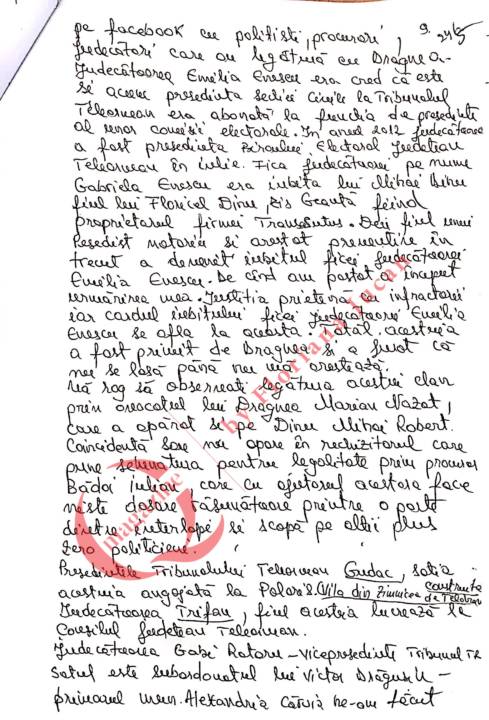 pe facebook cu politisti, procurori, 9. 24/5
judecători care au legătură cu Dragnea.
Judecătoarea Emilia Enescu era cred că este
si acum presedinta Sectiei Civile la Tribunalul
Teleorman era abonată la functia de presedinte
al unor comisii electorale. În anul 2012 judecătoarea
a fost presedinta Biroului Electoral Judetean
Teleorman în iulie. Fica judecătoarei pe nume
Gabriela Enescu era iubita lui Mihai Dinu
fiul lui Floricel Dinu, zis Geantă fiind
proprietarul firmei Transbutus. Deci fiul unui
Pesedist notoriu si arestat preventiv în
trecut a devenit iubitul ficei judecătoarei
Emilia Enescu. De când am postat a început
urmărirea mea. Justitia prietenă cu infractorii
iar cardul iubitului ficei judecătoarei Emilia
Enescu se afla la aceasta. Tatăl acestuia
a fost primit de Dragnea si a jurat că
nu se lasă până nu mă arestează.
Vă rog să observati legătura acestui clan
prin avocatul lui Dragnea Marian Nazat,
care a apărat si pe Dinu Mihai Robert.
Coincidentă sau nu apare în rechizitoriul care
pune semnătura pentru legalitate prim procuror
Bădoi Iulian, care cu ajutorul acestora face
niste dosare răsunătoare printre o parte
dintre interlopi si scapă pe altii plus
zero politicieni.
Presedintele Tribunalului Teleorman Gudac, sotia
acestuia angajată la Polaris. Vila din Zimnicea construita de Teldrum
Judecătoarea Trifan, fiul acesteia lucrează la
Consiliul Judetean Teleorman.
Judecătoarea Gabi Rotaru - Vicepresedinte Tribunal TR
Sotul este subordonatul lui Victor Drăgusin -
primarul mun. Alexandria căruia ne-am făcut
by Floriana Jucan
Q magazine